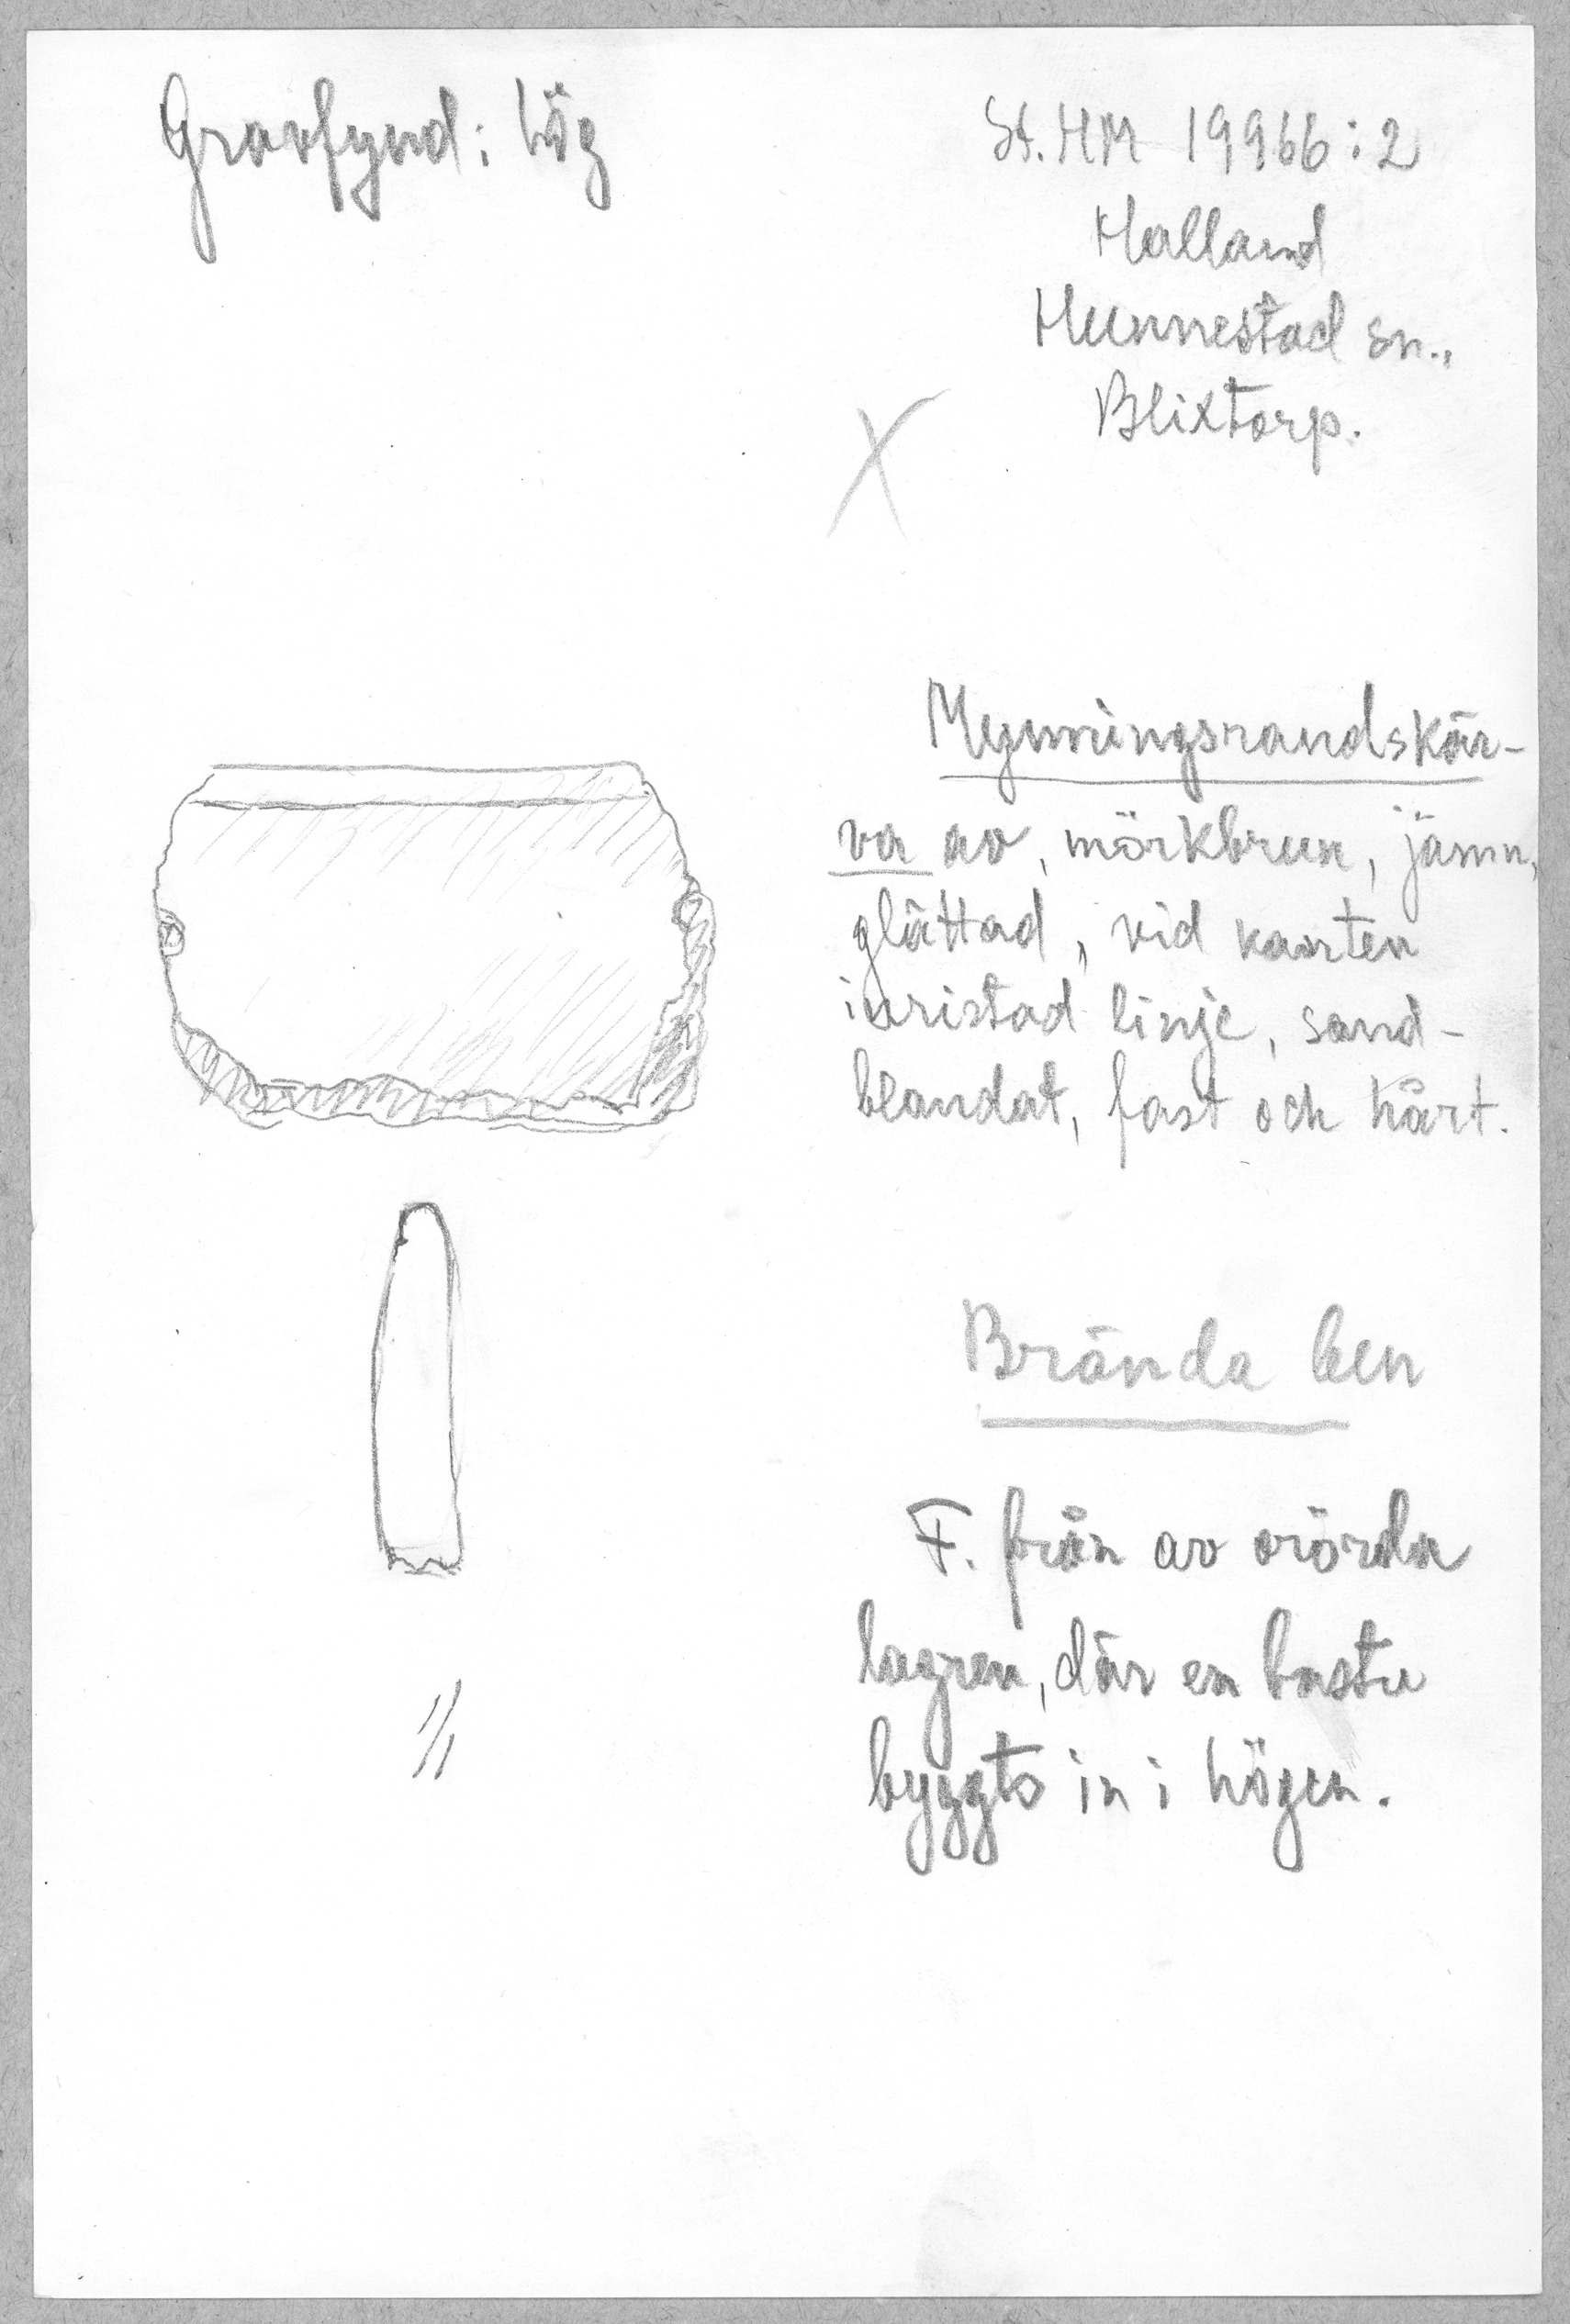 Gravfynd: hög
St. HM 19966:2
Halland
Hunnestad sn.,
Blixtorp.
X
Mynningsrandskär-
va av, mörkbrun, jämn,
glättad, vid kanten
inristad linje, sand-
blandat, fast och hårt.
Brända ben
F. från av orörda
lagren, där en bastu
byggts in i högen.
1/1